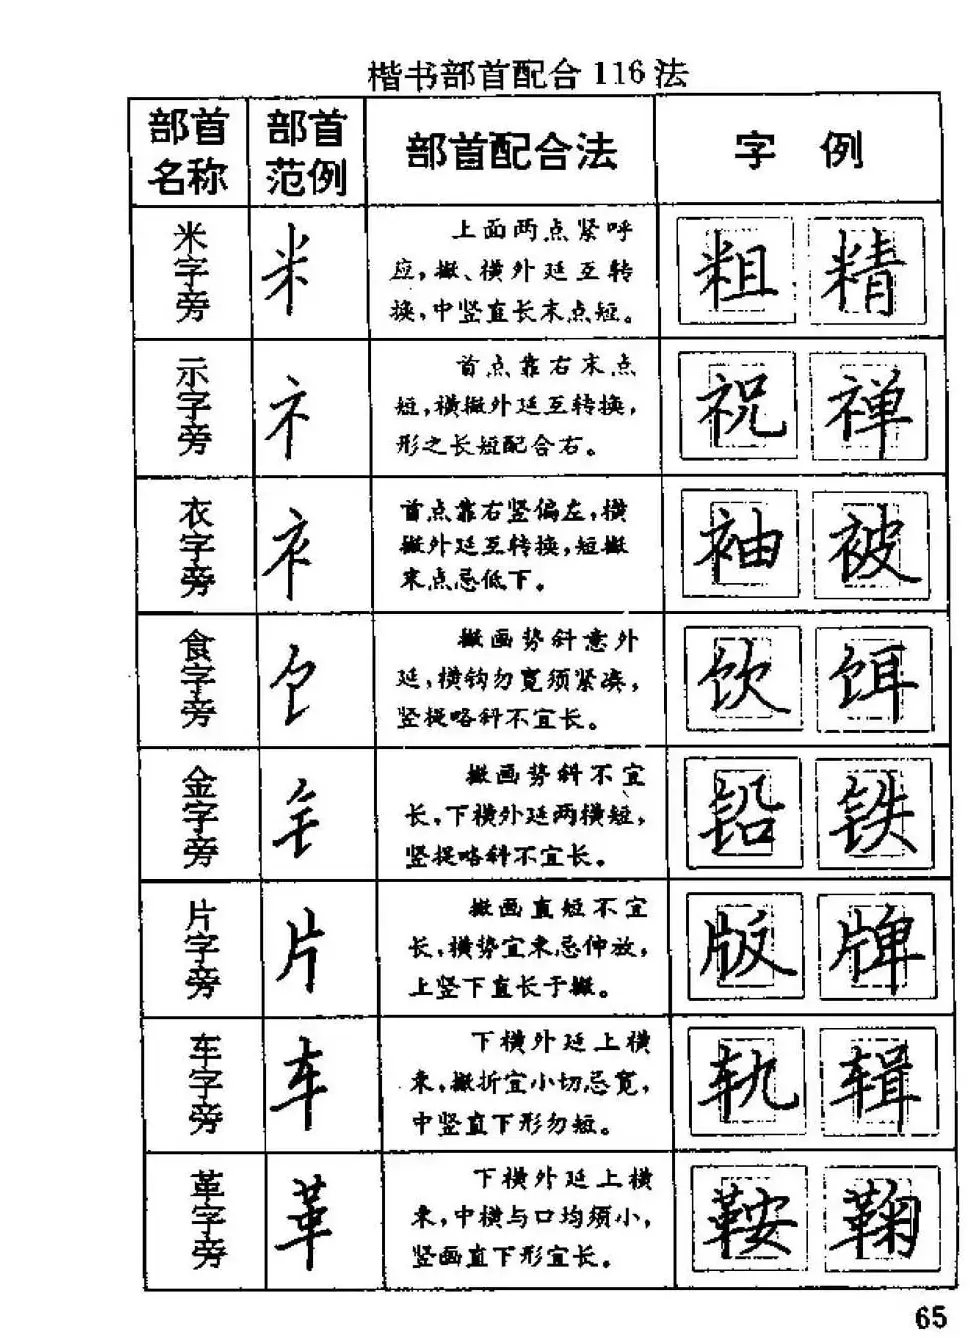 楷书部首配合116法
部首名称 部首范例 部首配合法 字例
米字旁 米 上面两点紧呼 粗 精
应,撇、横外延互转
换,中竖直长末点短。
示字旁 礻 首点靠右末点 祝 禅
短,横撇外延互转换,
形之长短配合右。
衣字旁 衤 首点靠右竖偏左,横 袖 被
撇外延互转换,短撇
末点忌低下。
食字旁 饣 撇画势斜意外 饮 饵
延,横钩勿宽须紧凑,
竖提略斜不宜长。
金字旁 钅 撇画势斜不宜 铅 铁
长,下横外延两横短,
竖提略斜不宜长。
片字旁 片 撇画直短不宜 版 牌
长,横势宜来忌伸放,
上竖下直长于撇。
车字旁 车 下横外延上横 轨 辑
来,撇折宜小切忌宽,
中竖直下形勿短。
革字旁 革 下横外延上横 鞍 鞠
来,中横与口均须小,
竖画直下形宜长。
65